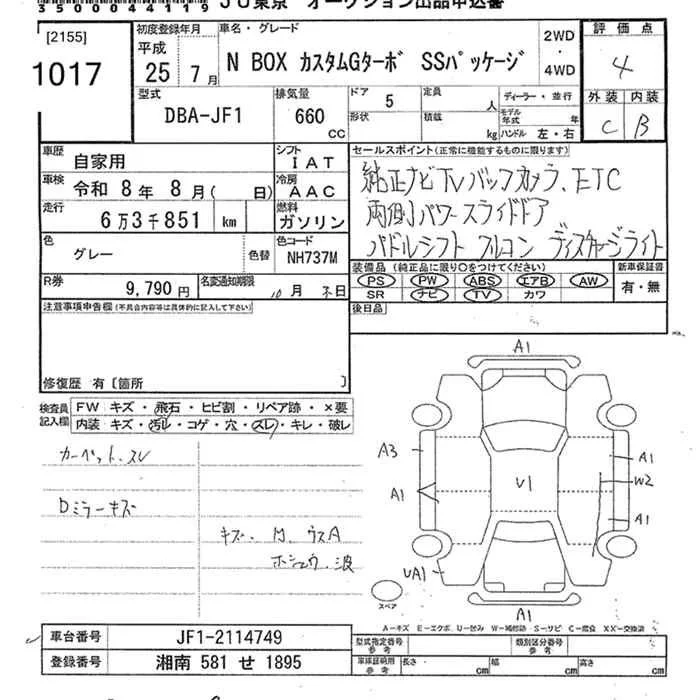 35000441119 JU東京 オークション出品申込書
[2155]
1017
初度登録年月
平成
25 7月
車名・グレード
N BOX カスタムGターボ SSパッケージ
2WD
・
4WD
評価点
4
外装 内装
C B
型式
DBA-JF1
排気量
660
CC
ドア 5
形状
定員 人
積載 kg
ディーラー・並行
モデル年式 年
ハンドル 左・右
車歴
自家用
シフト
IAT
車検
令和 8年 8月( 日)
冷房
AAC
走行
6万3千851 km
燃料
ガソリン
色
グレー
色替
色コード
NH737M
R券
9,790円
名変通知期限
10月 末日
セールスポイント(正常に機能するものに限ります)
純正ナビTVバックカメラ、ETC
両側パワースライドドア
パドルシフト フルコン ディスチャージライト
装備品 (純正品に限り○をつけてください)
PS PW ABS エアB AW
SR ナビ TV カワ
新車保証書
有・無
後日品
注意事項申告欄(不具合内容等は具体的に記入して下さい)
修復歴 有〔箇所 〕
検査員
記入欄
FW キズ・飛石・ヒビ割・リペア跡・×要
内装 キズ・汚レ・コゲ・穴・スレ・キレ・破レ
カーペット.スレ
Dミラーキズ
キズ. 凹. ウスA
ホシュウ.波
A1
A3
A1
V1
A1
W2
A1
UA1
A1
スペア
A-キズ E-エクボ U-凹み W-補修跡 S-サビ C-腐食 XX-交換済
車台番号 JF1-2114749
登録番号 湘南 581 せ 1895
型式指定番号
参考
類別区分番号
参考
車庫証明用
参考
長さ cm
幅 cm
高さ cm